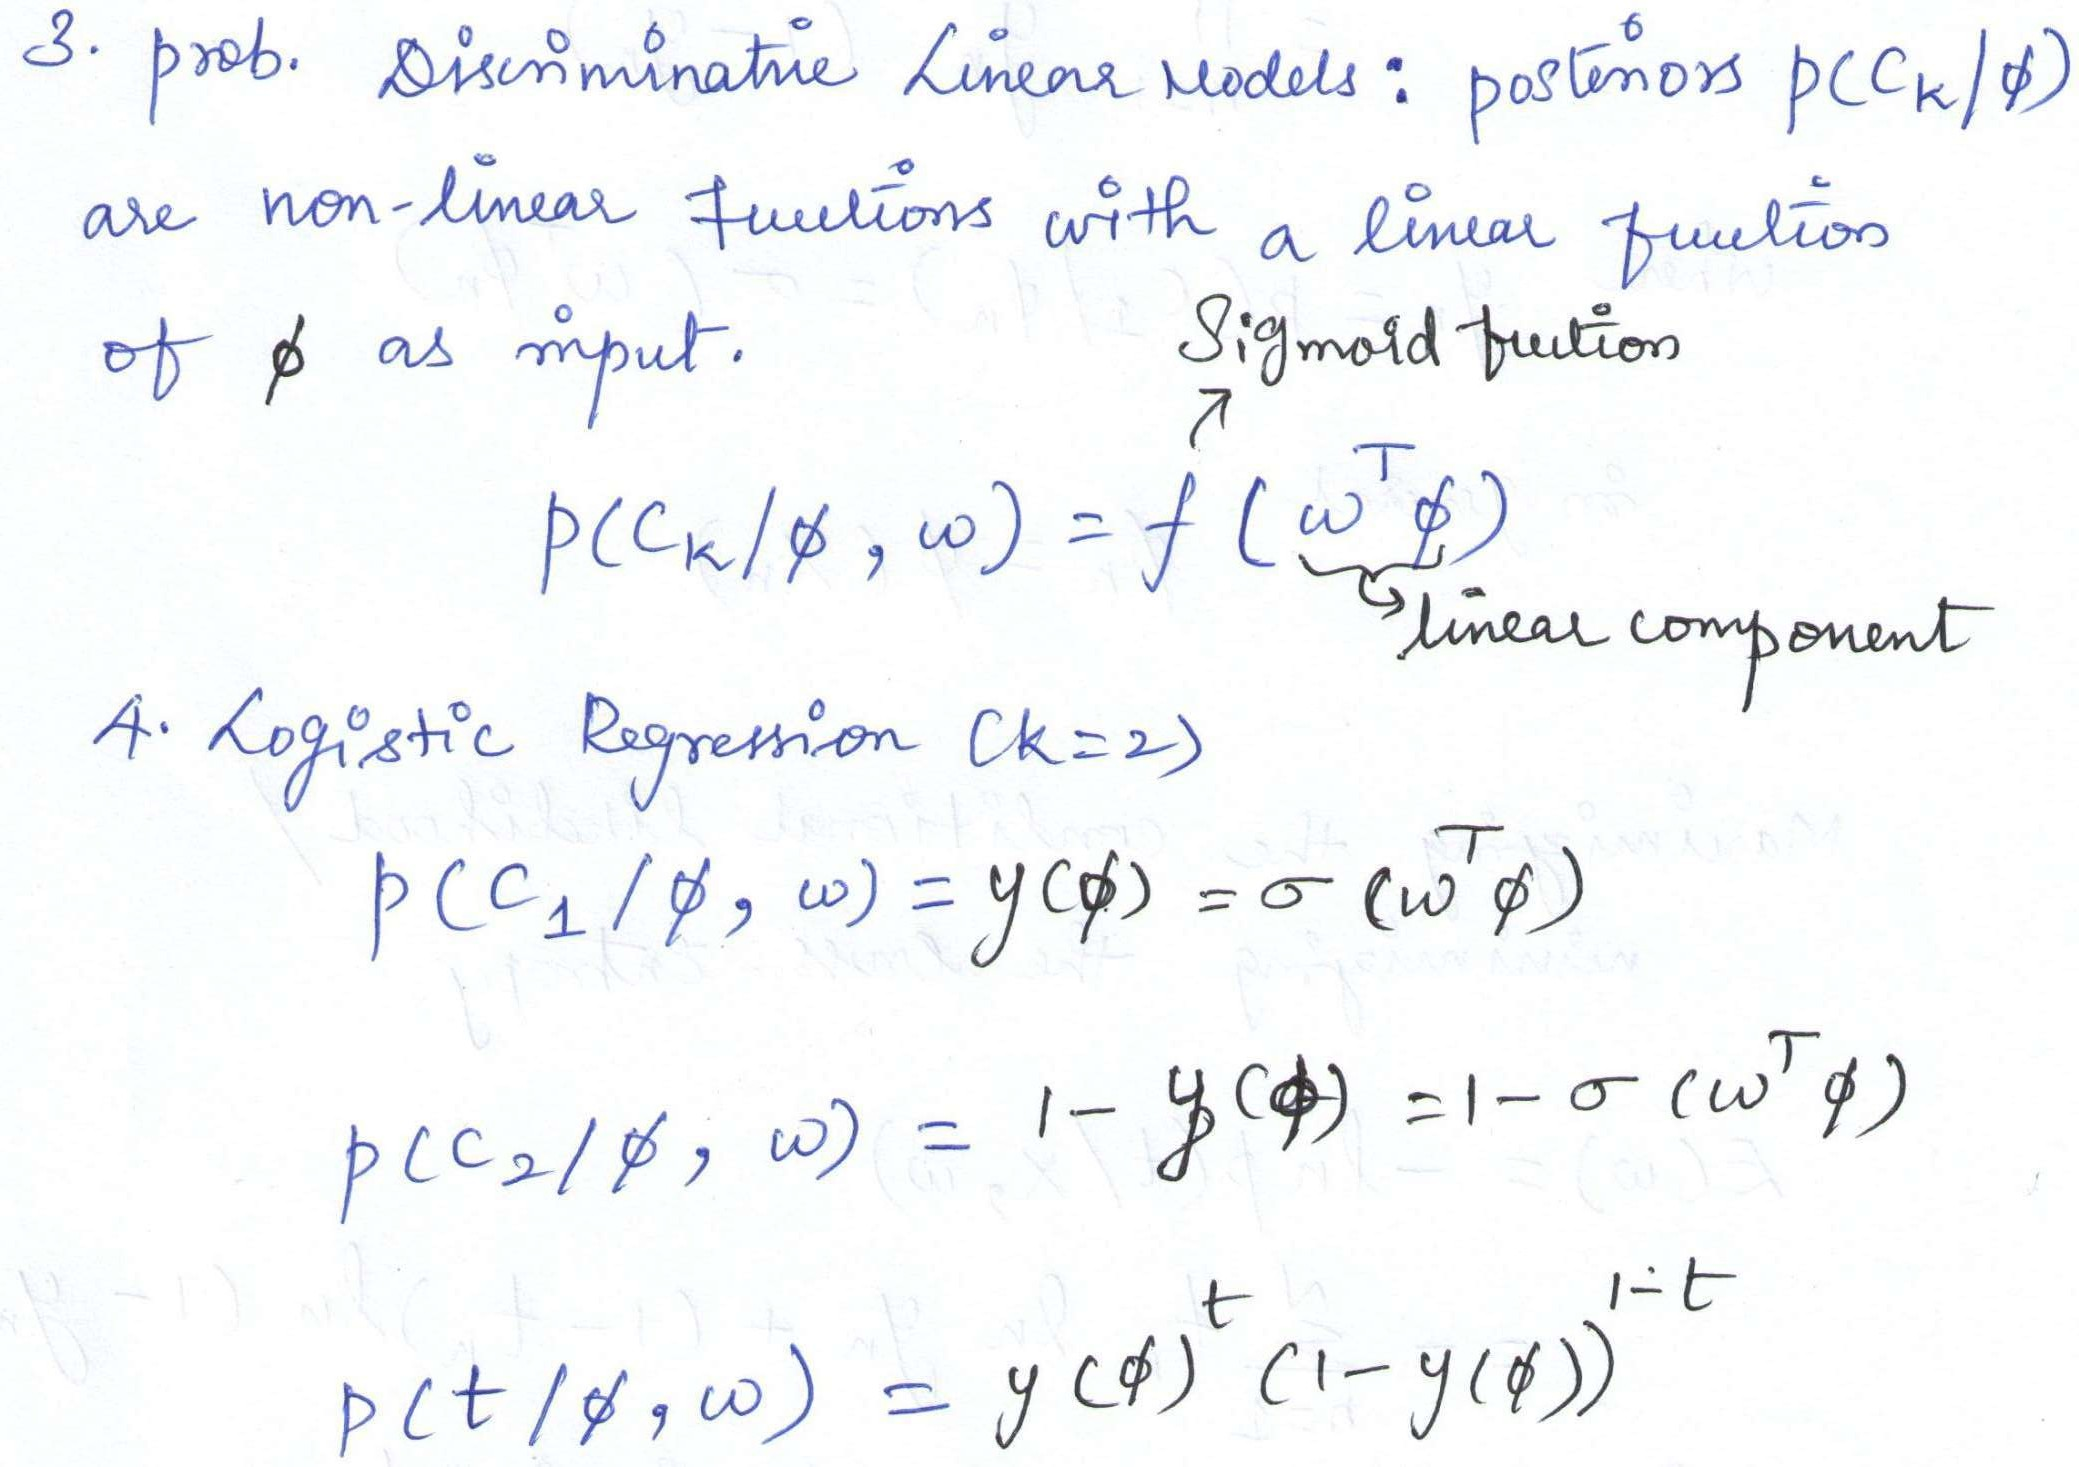 3. prob. Discriminative Linear Models : posteriors p(C_k/ϕ)
are non-linear functions with a linear function
of ϕ as input.
Sigmoid function
↗
p(C_k/ϕ, w) = f (w^T ϕ)
↳ linear component
4. Logistic Regression (k=2)
p(C_1/ϕ, w) = y(ϕ) = σ (w^T ϕ)
p(C_2/ϕ, w) = 1 - y(ϕ) = 1 - σ (w^T ϕ)
p(t/ϕ, w) = y(ϕ)^t (1 - y(ϕ))^{1-t}